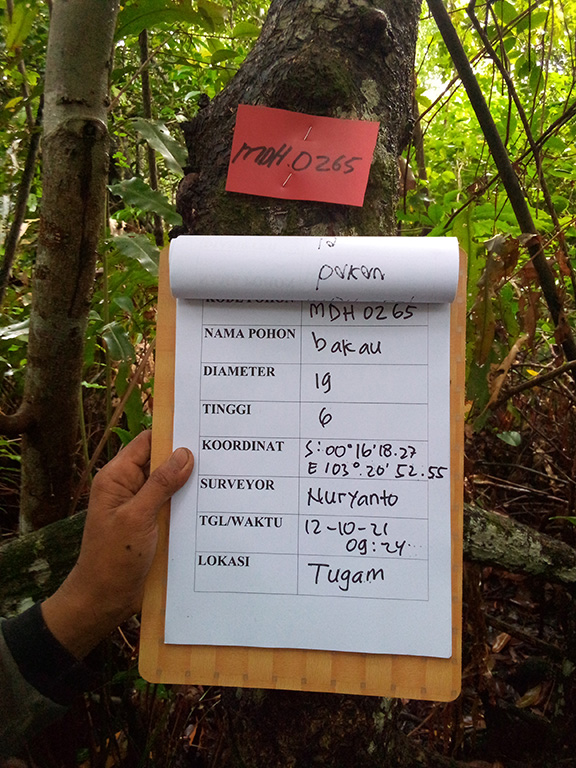 MDH.0265
pakan
KODE POHON MDH 0265
NAMA POHON bakau
DIAMETER 19
TINGGI 6
KOORDINAT S: 00° 16' 18.27
E 103°. 20' 52.55
SURVEYOR Nuryanto
TGL/WAKTU 12-10-21
09:24...
LOKASI Tugam